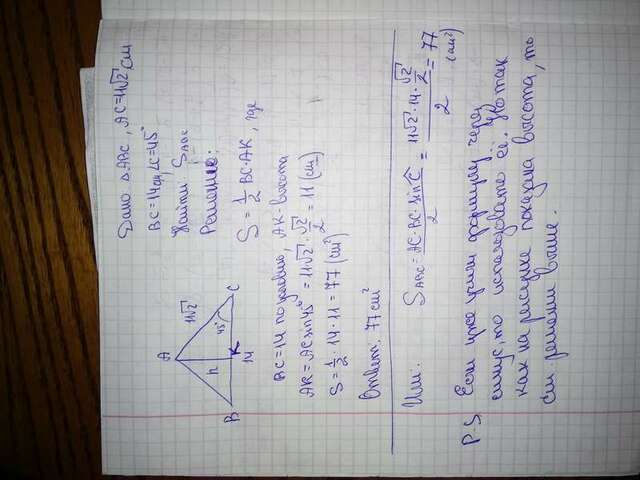 Дано △ABC, AC=11√2 см
BC=14см, ∠C=45°
Найти S_ABC
Решение:
A
11√2
h
45°
B
K
C
14
S = 1/2 BC·AK, где
BC=14 по условию, AK-высота
AK=AC sin45° = 11√2 · √2/2 = 11 (см)
S=1/2 · 14 · 11 = 77 (см²)
Ответ. 77см²
Или. S_ABC = AC·BC·sinĈ/2 = 11√2·14·√2/2 / 2 = 77 (см²)
P.S Если уже учили формулу через
синус, то используйте её. Но так
как на рисунке показана высота, то
см. решение выше.